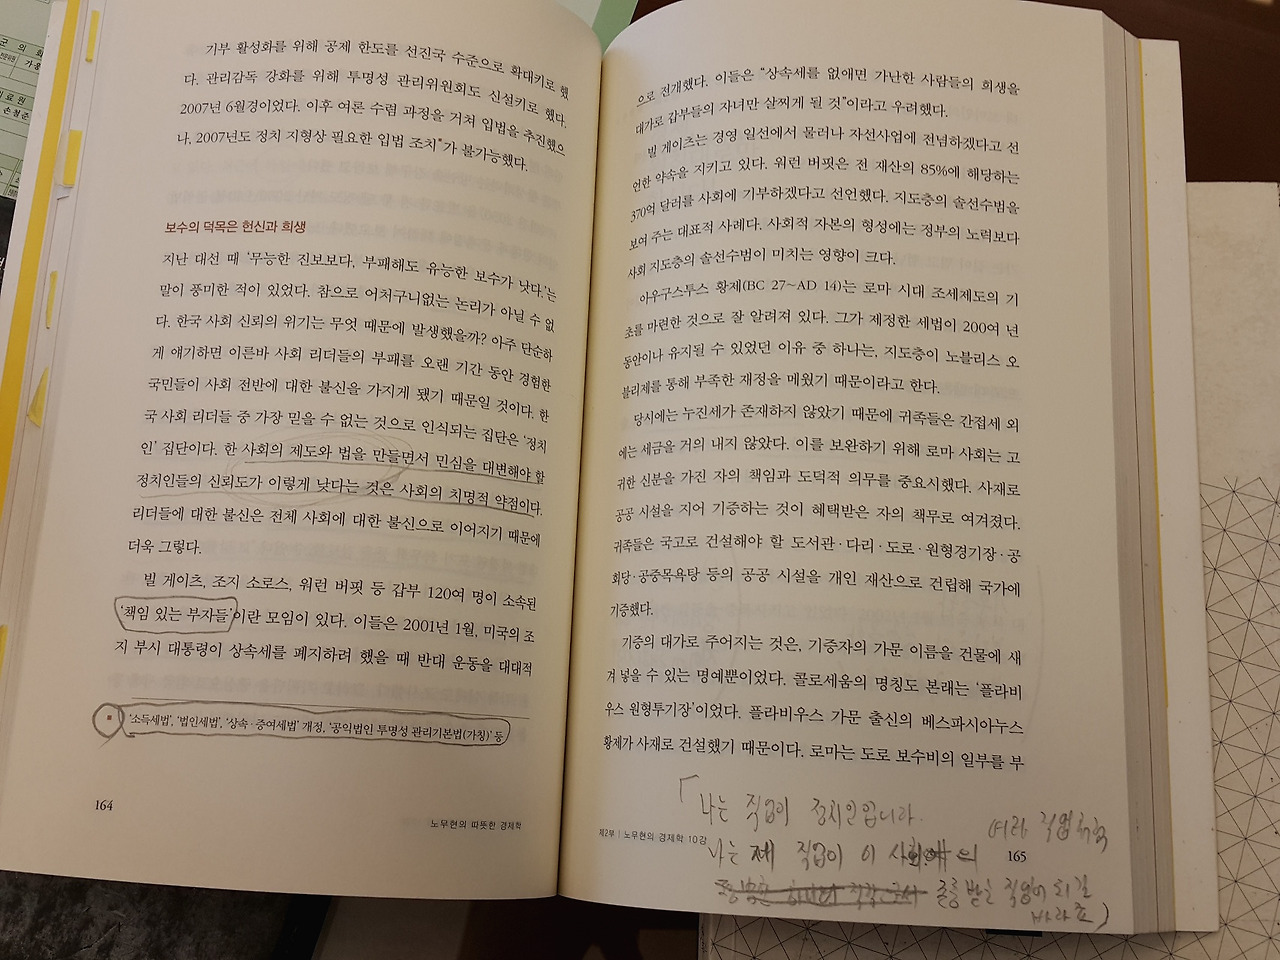 기부 활성화를 위해 공제 한도를 선진국 수준으로 확대키로 했
다. 관리감독 강화를 위해 투명성 관리위원회도 신설키로 했다.
2007년 6월경이었다. 이후 여론 수렴 과정을 거쳐 입법을 추진했으
나, 2007년도 정치 지형상 필요한 입법 조치■가 불가능했다.
보수의 덕목은 헌신과 희생
지난 대선 때 ‘무능한 진보보다, 부패해도 유능한 보수가 낫다.’는
말이 풍미한 적이 있었다. 참으로 어처구니없는 논리가 아닐 수 없
다. 한국 사회 신뢰의 위기는 무엇 때문에 발생했을까? 아주 단순하
게 얘기하면 이른바 사회 리더들의 부패를 오랜 기간 동안 경험한
국민들이 사회 전반에 대한 불신을 가지게 됐기 때문일 것이다. 한
국 사회 리더들 중 가장 믿을 수 없는 것으로 인식되는 집단은 ‘정치
인’ 집단이다. 한 사회의 제도와 법을 만들면서 민심을 대변해야 할
정치인들의 신뢰도가 이렇게 낮다는 것은 사회의 치명적 약점이다.
리더들에 대한 불신은 전체 사회에 대한 불신으로 이어지기 때문에
더욱 그렇다.
빌 게이츠, 조지 소로스, 워런 버핏 등 갑부 120여 명이 소속된
‘책임 있는 부자들’이란 모임이 있다. 이들은 2001년 1월, 미국의 조
지 부시 대통령이 상속세를 폐지하려 했을 때 반대 운동을 대대적
■ ‘소득세법’, ‘법인세법’, ‘상속·증여세법’ 개정, ‘공익법인 투명성 관리기본법(가칭)’ 등
164
노무현의 따뜻한 경제학
으로 전개했다. 이들은 “상속세를 없애면 가난한 사람들의 희생을
대가로 갑부들의 자녀만 살찌게 될 것”이라고 우려했다.
빌 게이츠는 경영 일선에서 물러나 자선사업에 전념하겠다고 선
언한 약속을 지키고 있다. 워런 버핏은 전 재산의 85%에 해당하는
370억 달러를 사회에 기부하겠다고 선언했다. 지도층의 솔선수범을
보여 주는 대표적 사례다. 사회적 자본의 형성에는 정부의 노력보다
사회 지도층의 솔선수범이 미치는 영향이 크다.
아우구스투스 황제(BC 27~AD 14)는 로마 시대 조세제도의 기
초를 마련한 것으로 잘 알려져 있다. 그가 제정한 세법이 200여 년
동안이나 유지될 수 있었던 이유 중 하나는, 지도층이 노블리스 오
블리제를 통해 부족한 재정을 메웠기 때문이라고 한다.
당시에는 누진세가 존재하지 않았기 때문에 귀족들은 간접세 외
에는 세금을 거의 내지 않았다. 이를 보완하기 위해 로마 사회는 고
귀한 신분을 가진 자의 책임과 도덕적 의무를 중요시했다. 사재로
공공 시설을 지어 기증하는 것이 혜택받은 자의 책무로 여겨졌다.
귀족들은 국고로 건설해야 할 도서관·다리·도로·원형경기장·공
회당·공중목욕탕 등의 공공 시설을 개인 재산으로 건립해 국가에
기증했다.
기증의 대가로 주어지는 것은, 기증자의 가문 이름을 건물에 새
겨 넣을 수 있는 명예뿐이었다. 콜로세움의 명칭도 본래는 ‘플라비
우스 원형투기장’이었다. 플라비우스 가문 출신의 베스파시아누스
황제가 사재로 건설했기 때문이다. 로마는 도로 보수비의 일부를 부
「나는 직업이 정치인입니다.
제2부 | 노무현의 경제학 10강
165
나는 제 직업이 이
존중받는 직업이 되길